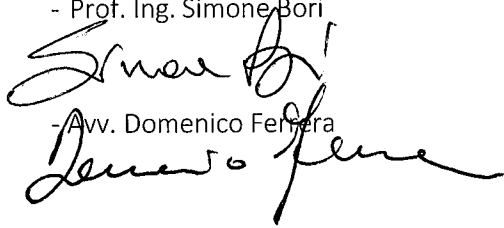 - Prof. Ing. Simone Bori
Simone Bori
- Avv. Domenico Ferrera
Domenico Ferrera